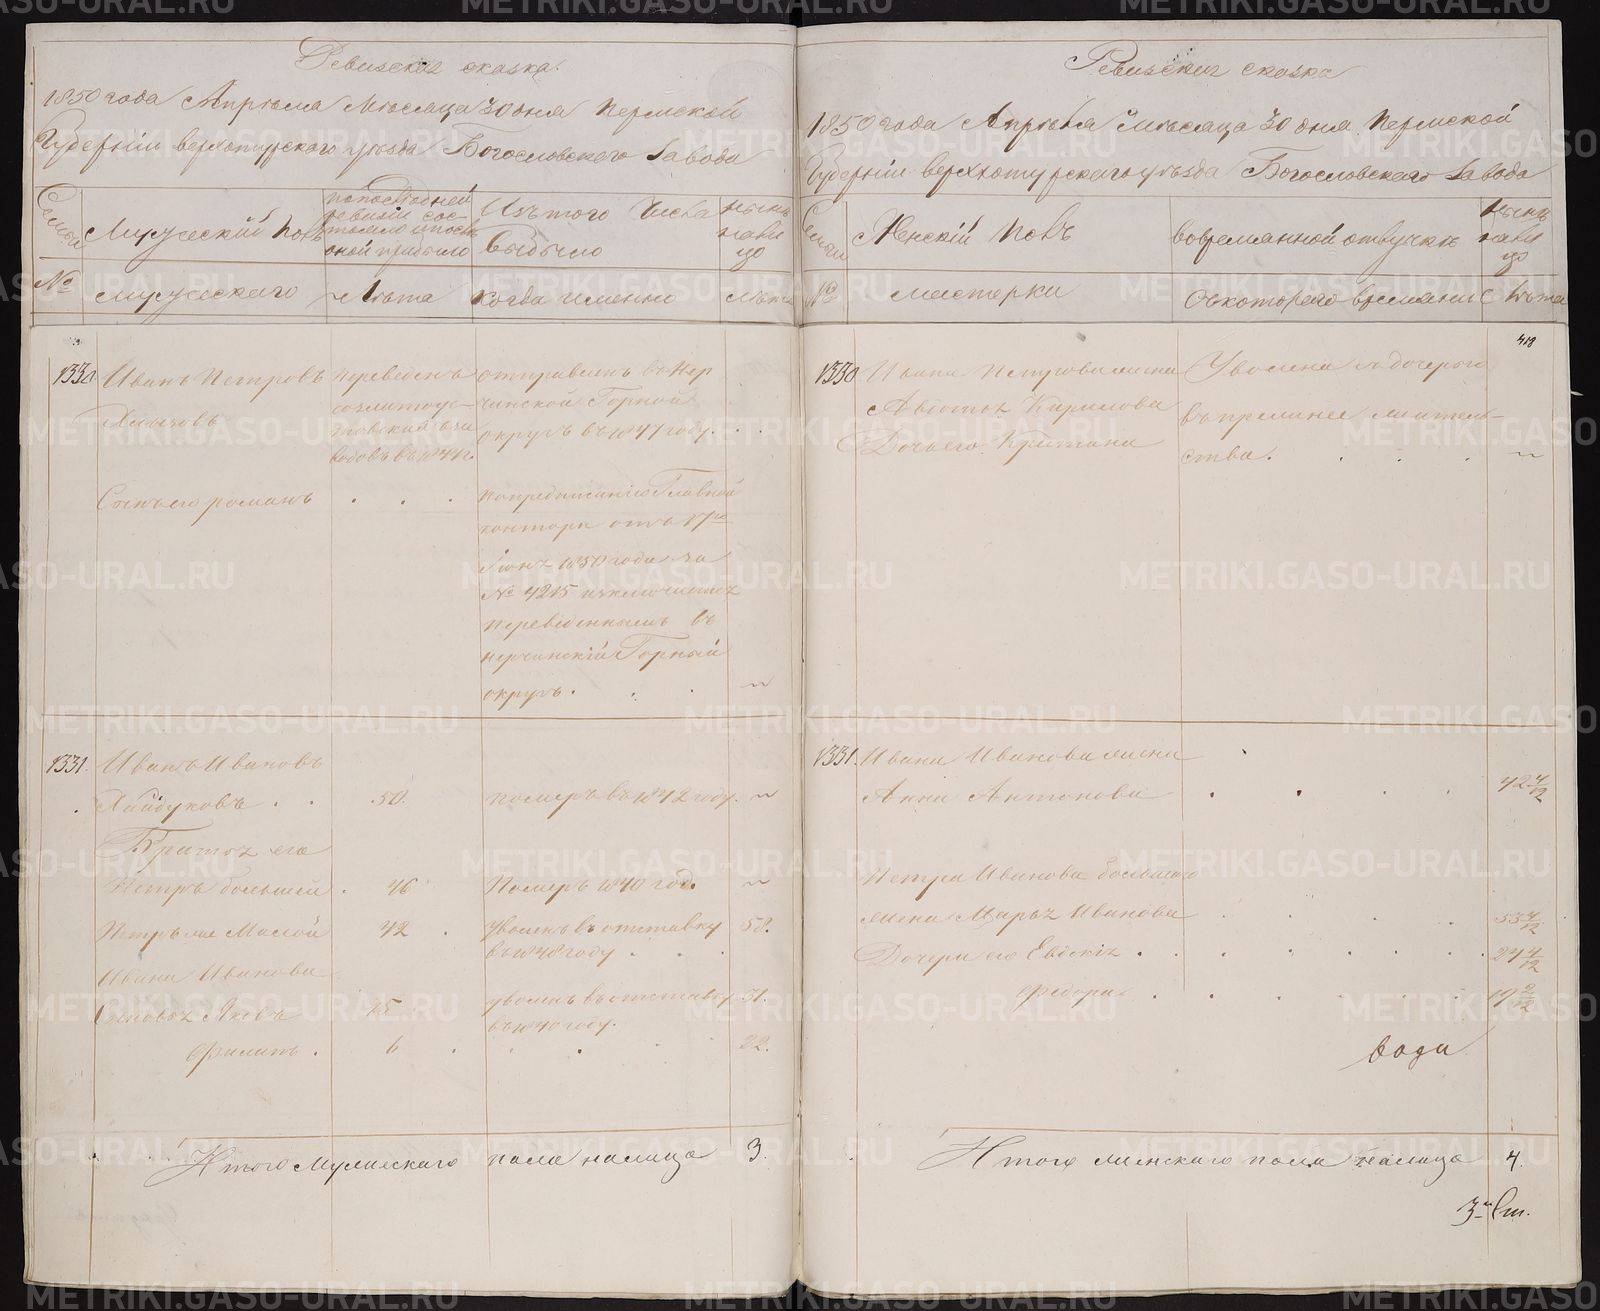 Ревизская сказка.
1850 года Апреля Месяца 30 дня Пермской
Губернiи верхотурского уезда Богословского Завода
Семьи
Мужеский Полъ
по последней
ревизiи сос-
тояло и после
оной прибыло
Изъ того Числа
Выбыло
ныне
на ли
цо
№
мужескаго
Лета
когда именно
лета
1330.
Иванъ Петровъ
переведенъ
отправленъ в Нер
чинской Горной
округъ въ 1847 году.
водовъ въ 1844 г.
Сынъ его романъ
по предписанiю Главной
конторы отъ 17го
Iюня 1850 года за
№ 4215 изключается
переведеннымъ въ
нерчинскiй Горный
округъ.
1331.
Иванъ Ивановъ
Хайдуковъ
50.
померъ въ 1842 году.
Братья его
Петръ большей
46
Померъ 1840 год.
Петръ же Малой
42
уволенъ в отставку
въ 1848 году
58.
Ивана Иванова
Сыновья Яковъ
15
уволенъ въ отставку
въ 1840 году.
31.
Филипъ
6
22.
Итого Мужескаго пола налицо 3.
Ревизская сказка
1850 года Апреля Месяца 30 дня Пермской
Губернiи верхотурского уезда Богословского Завода
Семьи
Женскiй Полъ
во временной отлучке
ныне
на ли
цо
№
Съ которого времени
Лета
418
1330
Ивана Петрова жена
Авдотья Кирилова
Уволена с дочерью
в прежнее житель-
ства.
1331.
Ивана Иванова жена
Анна Антонова
42 4/12
Петра Иванова большаго
жена Марья Иванова
53 4/12
Дочери его Евдокiя
24 4/12
Федора
19 2/12
Итого женскаго пола налицо 4.